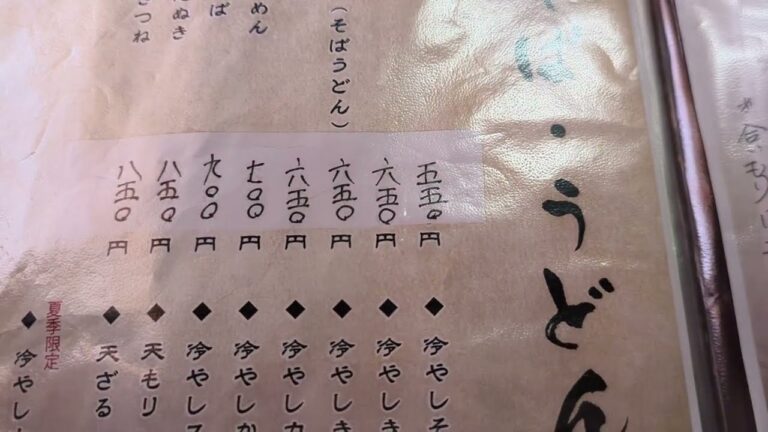 ば・うどん
(そばうどん)
めん
ば
ぬき
きつね
五五〇円
六五〇円
六五〇円
六五〇円
七〇〇円
九〇〇円
八五〇円
八五〇円
◆冷やしそ
◆冷やしき
◆冷やしき
◆冷やしカ
◆冷やしか
◆冷やして
◆天もり
◆天ざる
夏季限定
◆冷やし